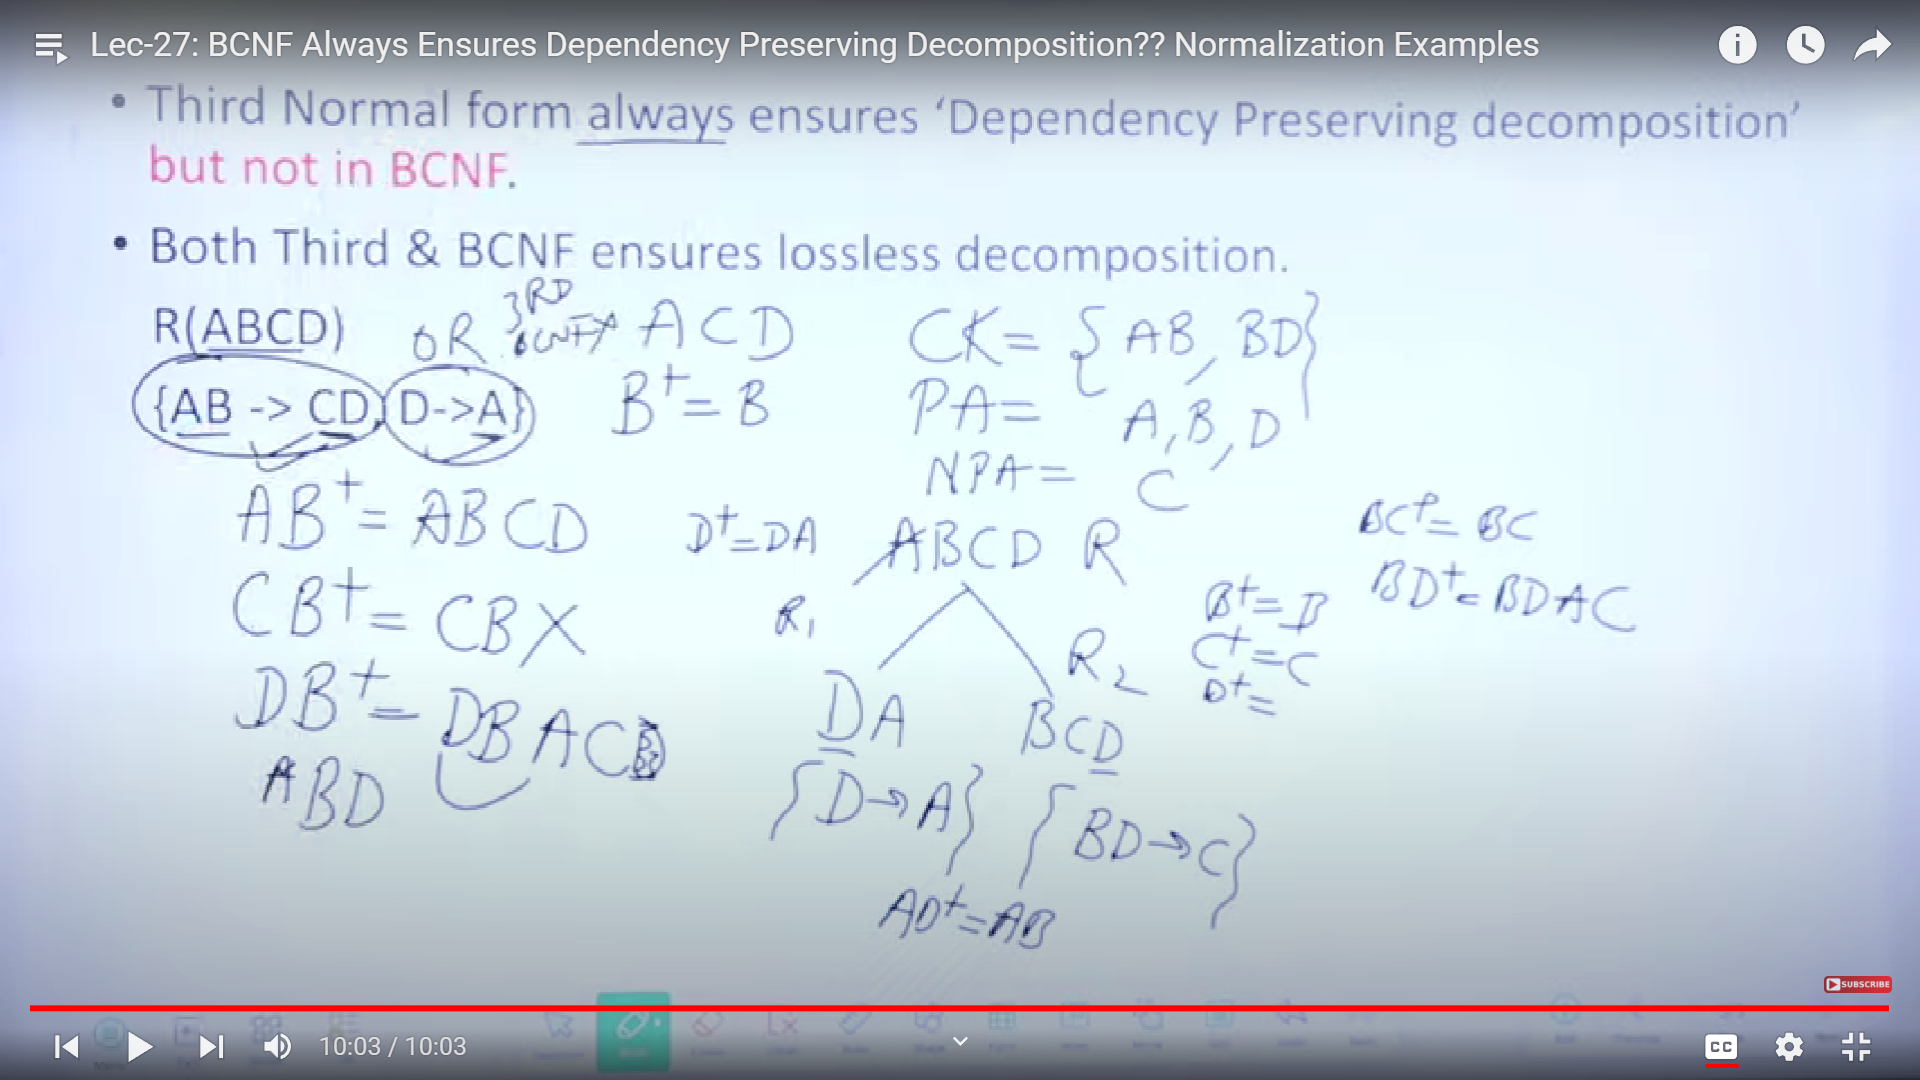 Lec-27: BCNF Always Ensures Dependency Preserving Decomposition?? Normalization Examples
• Third Normal form always ensures ‘Dependency Preserving decomposition’
but not in BCNF.
• Both Third & BCNF ensures lossless decomposition.
R(ABCD)
OR
3RD
ACD
{AB -> CD, D->A}
B+= B
CK= {AB, BD}
PA= A, B, D
NPA= C
AB+= ABCD
CB+= CBX
DB+= DBAC
ABD
D+=DA
ABCD R
R1
R2
DA
BCD
{D→A}
{BD→C}
AD+=AB
B+=B
C+=C
D+=
BC+= BC
BD+= BDAC
SUBSCRIBE
10:03 / 10:03
CC